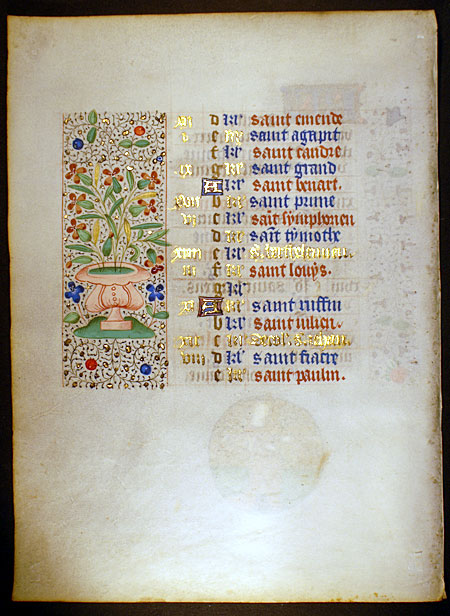 d kl saint emende
e kl saint agapit
f kl saint candre
ix g kl saint grand
A kl saint benart.
b kl saint prime
vi c kl sait symphorien
d kl sait tymothe
e kl
f kl saint louys.
g kl
A kl saint ruffin
b kl saint iulien.
c kl
viii d kl saint fiacre
e kl saint paulin.